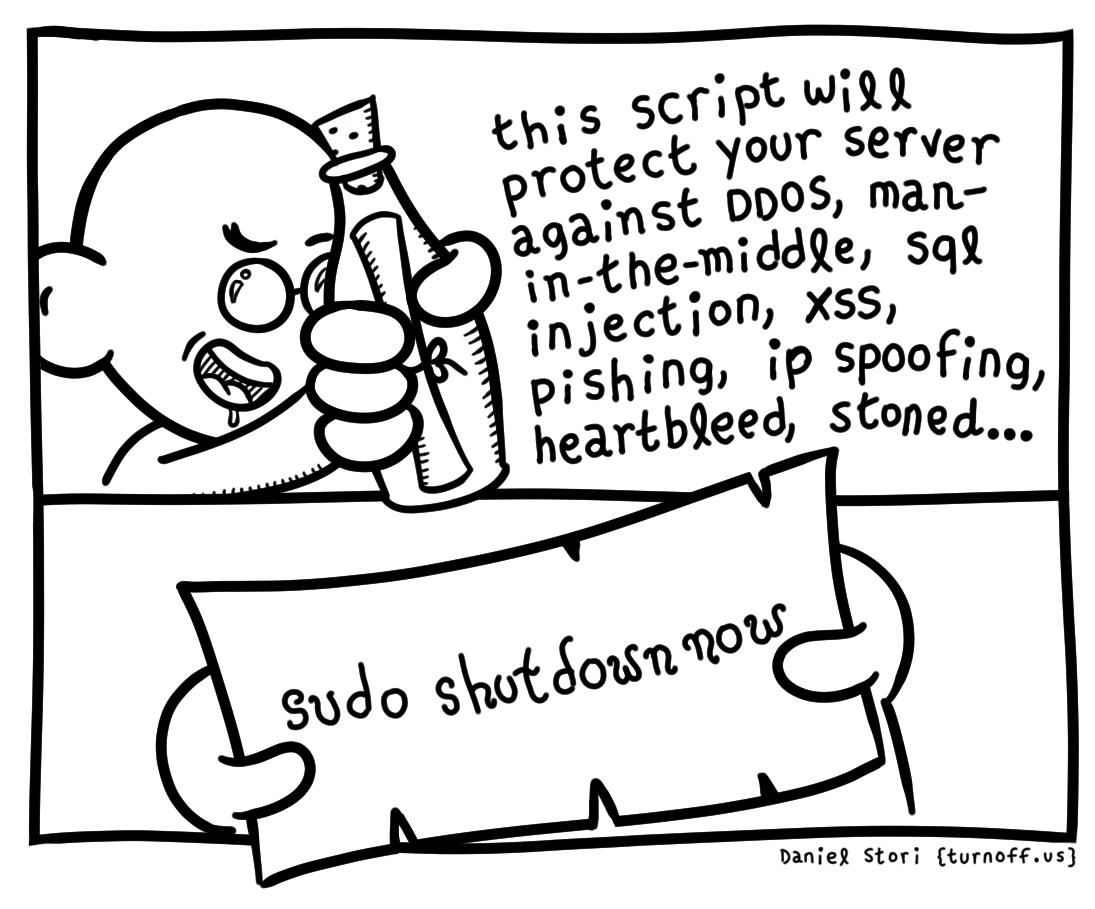 this script will
protect your server
against DDOS, man-
in-the-middle, sql
injection, XSS,
pishing, ip spoofing,
heartbleed, stoned...
sudo shutdown now
Daniel Stori {turnoff.us}